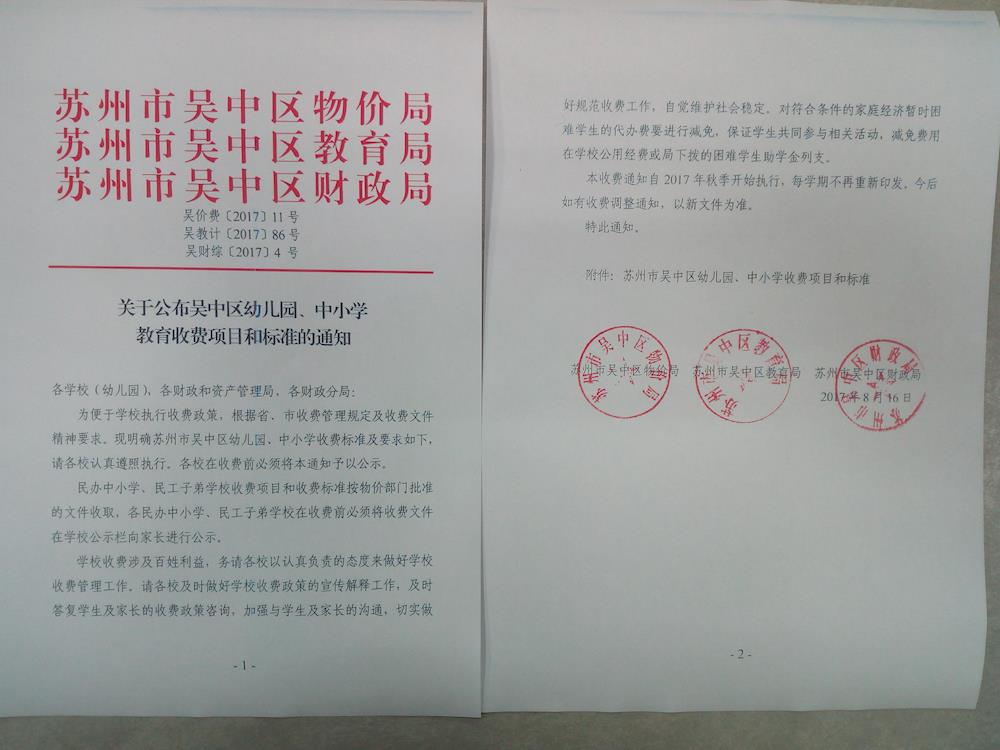 苏州市吴中区物价局
苏州市吴中区教育局
苏州市吴中区财政局
吴价费〔2017〕11号
吴教计〔2017〕86号
吴财综〔2017〕4 号
关于公布吴中区幼儿园、中小学
教育收费项目和标准的通知
各学校（幼儿园）、各财政和资产管理局，各财政分局：
为便于学校执行收费政策，根据省、市收费管理规定及收费文件
精神要求。现明确苏州市吴中区幼儿园、中小学收费标准及要求如下，
请各校认真遵照执行。各校在收费前必须将本通知予以公示。
民办中小学、民工子弟学校收费项目和收费标准按物价部门批准
的文件收取，各民办中小学、民工子弟学校在收费前必须将收费文件
在学校公示栏向家长进行公示。
学校收费涉及百姓利益，务请各校以认真负责的态度来做好学校
收费管理工作。请各校及时做好学校收费政策的宣传解释工作，及时
答复学生及家长的收费政策咨询，加强与学生及家长的沟通，切实做
- 1 -
好规范收费工作，自觉维护社会稳定。对符合条件的家庭经济暂时困
难学生的代办费要进行减免，保证学生共同参与相关活动，减免费用
在学校公用经费或局下拨的困难学生助学金列支。
本收费通知自 2017 年秋季开始执行，每学期不再重新印发。今后
如有收费调整通知，以新文件为准。
特此通知。
附件：苏州市吴中区幼儿园、中小学收费项目和标准
苏州市吴中区物价局 苏州市吴中区教育局 苏州市吴中区财政局
2017 年 8 月 16 日
苏州市吴中区物价局
苏州市吴中区教育局
苏州市吴中区财政局
- 2 -